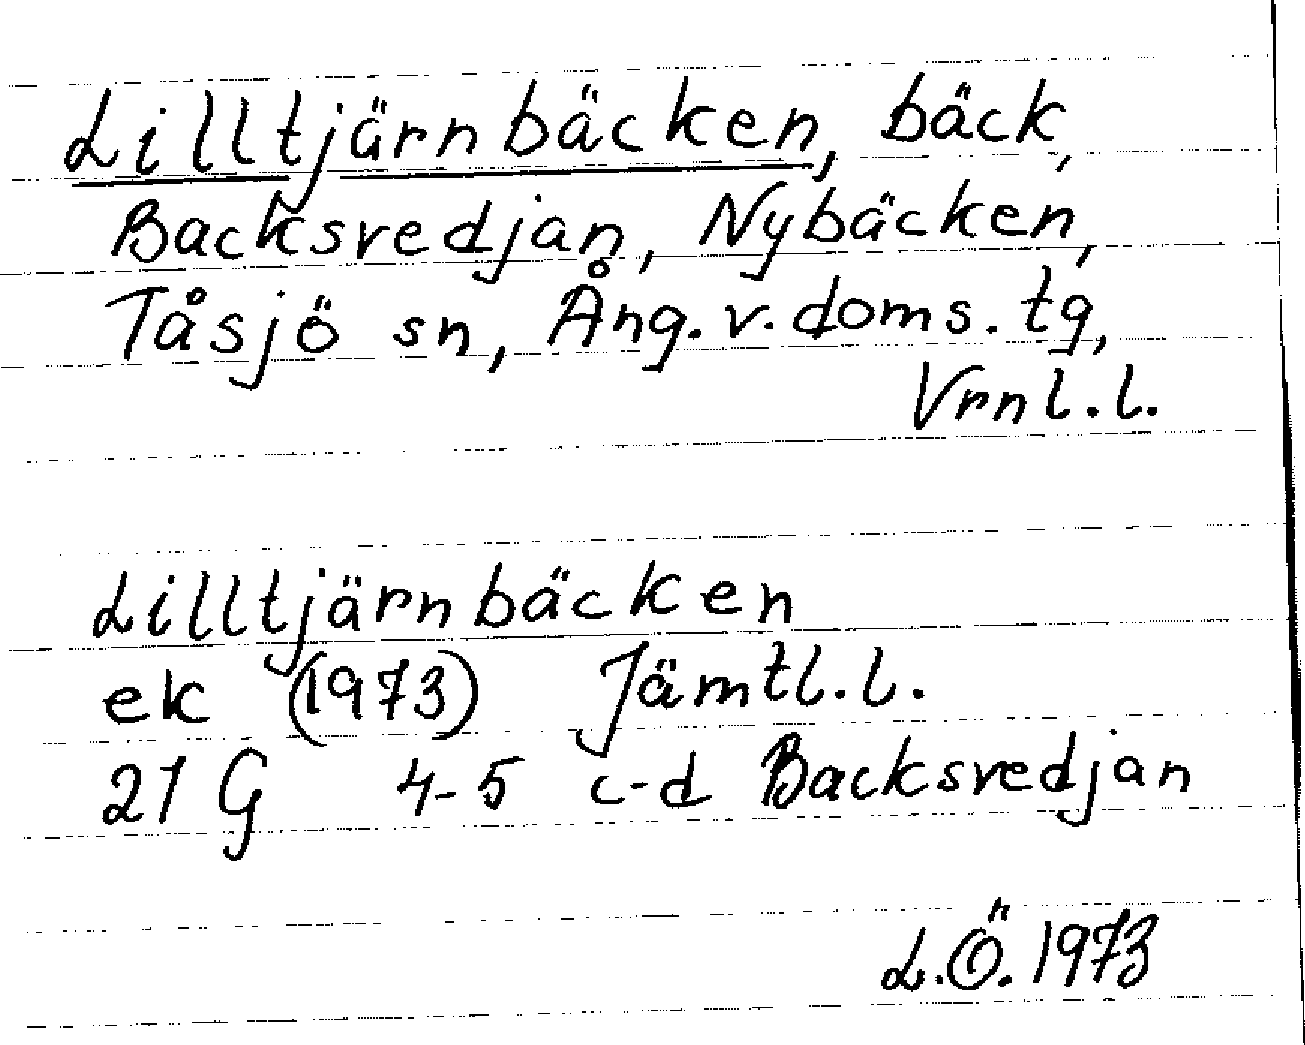 Lilltjärnbäcken, bäck,
Backsvedjan, Nybäcken,
Tåsjö sn, Ång. v. doms. tg,
Vrnl. l.
Lilltjärnbäcken
ek (1973) Jämtl. l.
21 G 4-5 c-d Backsvedjan
L. Ö. 1973